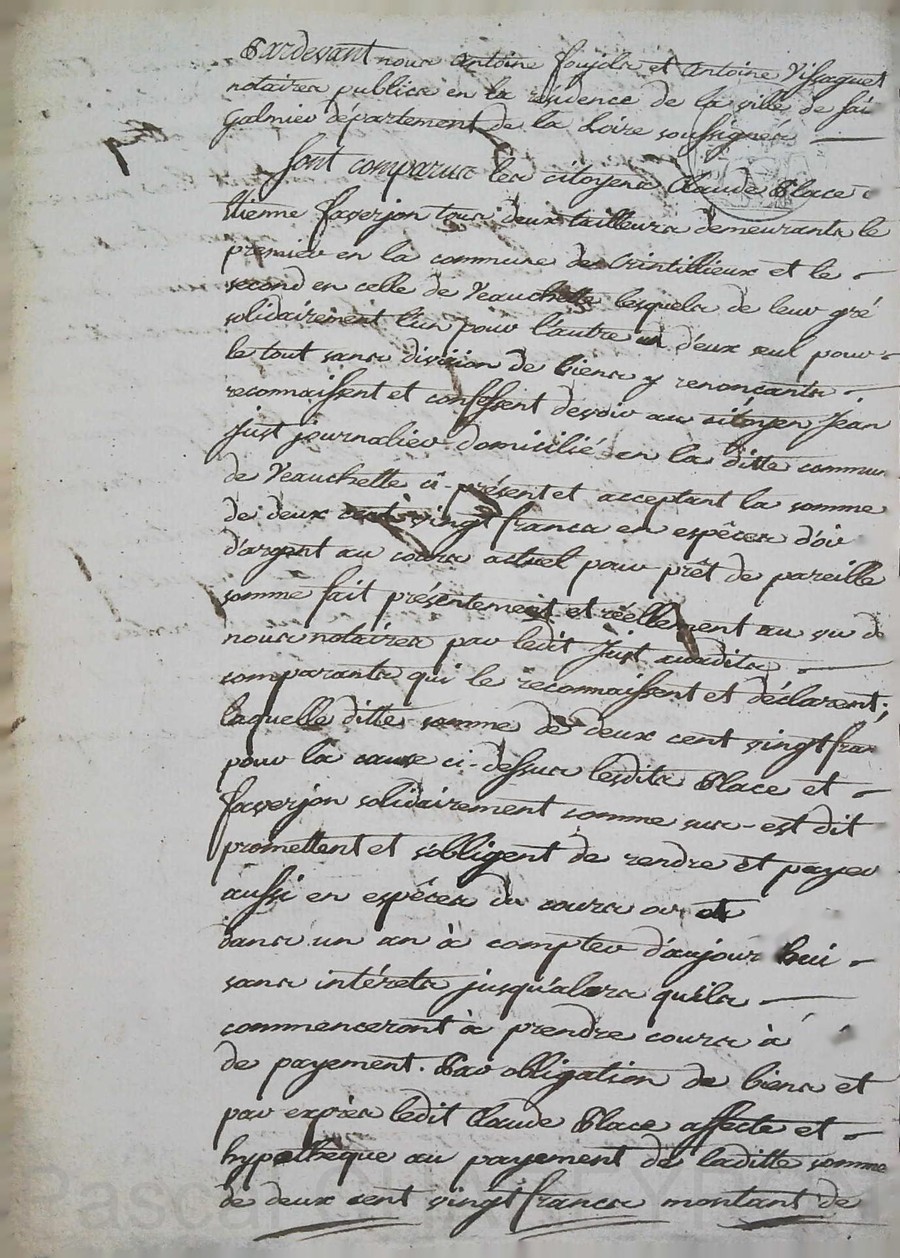 Pardevant nous Antoine Foujols et Antoine Vissaguet
notaires publics en la résidence de la ville de Sai
Galmier département de la Loire soussignés
Sont comparus les citoyens Claude Place
Etienne Faverjon tous deux tailleurs demeurants le
premier en la commune de Crintillieux et le
second en celle de Veauchette lesquels de leur gré
solidairement l'un pour l'autre un d'eux seul pour
le tout sans division de biens y renonçants
reconnaissent et confessent devoir au citoyen Jean
Just journalier domicilié en la ditte commun
de Veauchette ci-présent et acceptant la somme
de deux cent vingt francs en espêces d'or
d'argent au cours actuel pour prêt de pareille
somme fait présentement et réellement au vu d
nous notaires par ledit Just auxdits
comparants qui le reconnaissent et déclarent;
laquelle ditte somme de deux cent vingt fran
pour la cause ci-dessus lesdits Place et
Faverjon solidairement comme sus-est dit
promettent et s'obligent de rendre et payer
aussi en espêces du cours or
dans un an à compter d'aujour hui
sans intérets jusqu'alors quils
commenceront à prendre cours à
de payement. Par obligation de biens et
par exprès ledit Claude Place affecte et
hypothèque au payement de laditte somme
de deux cent vingt francs montant de
Pascal